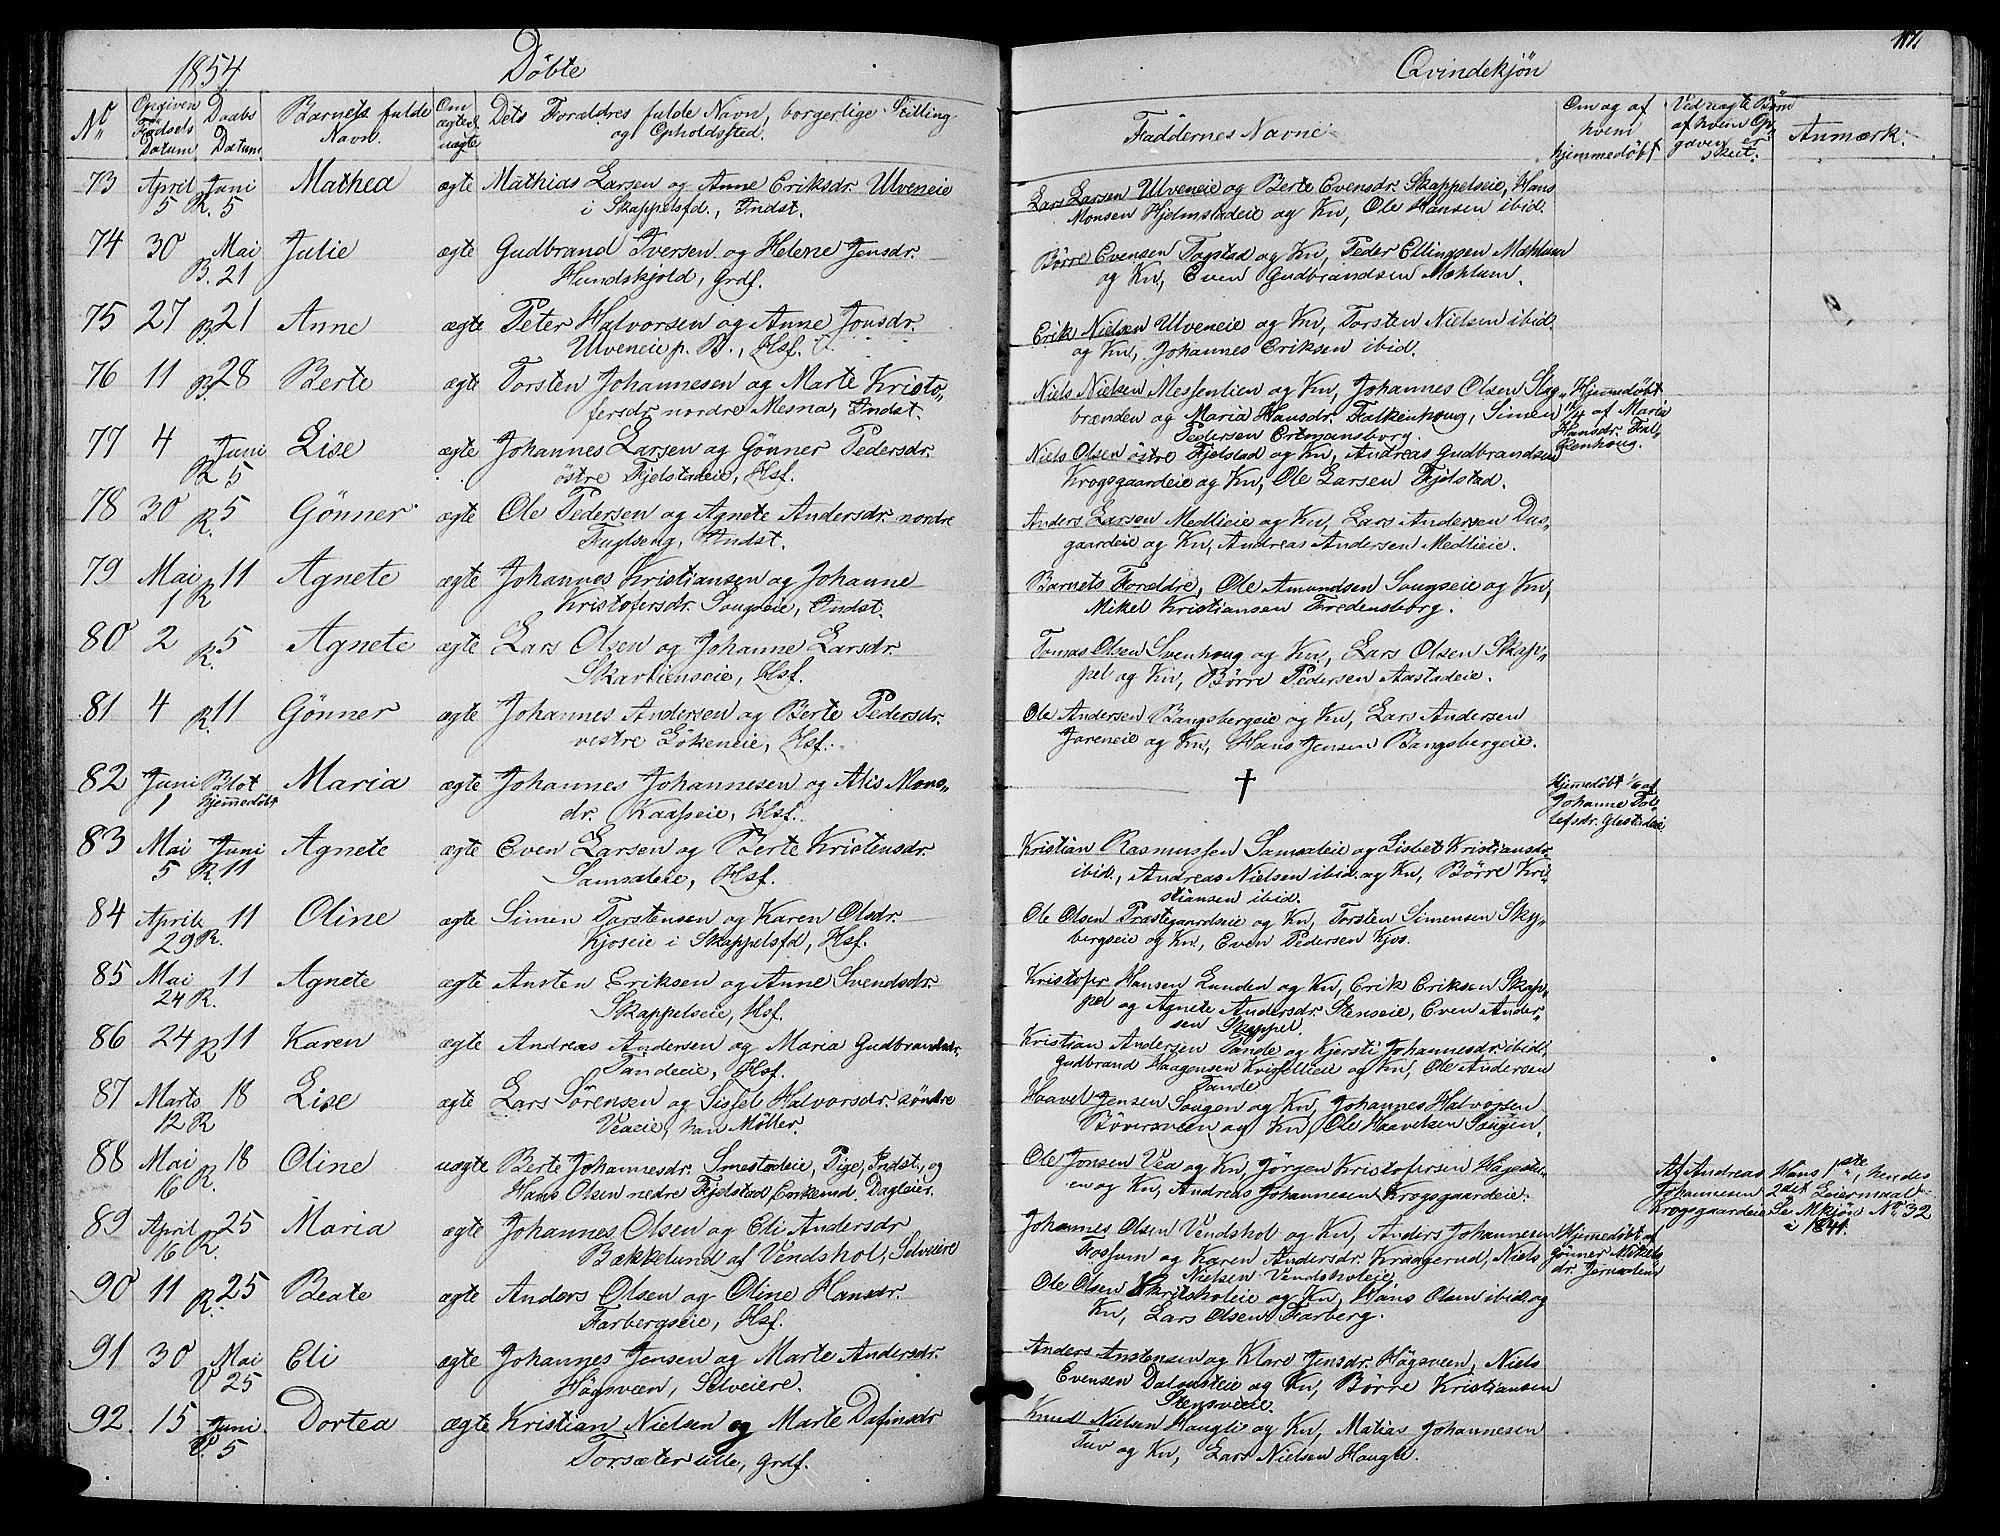 1854
Döbte
No
Opgiven Fødsels Datum
Daabs Datum
Barnets fulde Navn.
Om ægte el. uægte
Dets Forældres fulde Navn, borgerlige Stilling
og Opholdsted.
73 April 5 Juni R. 5 Mathea ægte Mathias Larsen og Anne Eriksdr. Ulveneie
i Skappelsfd., Indst.
74 30 Mai B. 21 Julie ægte Gudbrand Iversen og Helene Jensdr.
Hundskjold, Grdf.
75 27 B. 21 Anne ægte Peter Halvorsen og Anne Jonsdr.
Ulveneie p. B., Hsf.
76 11 B. 28 Berte ægte Torsten Johannesen og Marte Kristo„
fersdr. nordre Mesna, Indst.
77 4 Juni R 5 Lise ægte Johannes Larsen og Gönner Pedersdr.
östre Fjelstadeie, Hsf.
78 30 R. 5 Gönner ægte Ole Pedersen og Agnete Andersdr. nordre
Fuglseng, Indst.
79 Mai 1 R 11 Agnete ægte Johannes Kristiansen og Johanne
Kristofersdr. Sougseie, Indst.
80 2 R. 5 Agnete ægte Lars Olsen og Johanne Larsdr.
Skartienseie, Hsf.
81 4 R. 11 Gönner ægte Johannes Andersen og Berte Pedersdr.
vestre Lökeneie, Hsf.
82 Juni 1 Blot hjemmedöbt Maria ægte Johannes Johannesen og Alis Mons„
dr. Kaasseie, Hsf.
83 Mai 5 Juni R. 11 Agnete ægte Even Larsen og Berte Kristensdr.
Samsaleie, Hsf.
84 April 29 R. 11 Oline ægte Simen Torstensen og Karen Olsdr.
Kjoseie i Skappelsfd, Hsf.
85 Mai 24 R. 11 Agnete ægte Ansten Eriksen og Anne Svendsdr.
Skappelseie, Hsf.
86 24 R 11 Karen ægte Andreas Andersen og Maria Gudbrandsdr.
Tandeeie, Hsf.
87 Marts 12 R 18 Lise ægte Lars Sörensen og Sissel Halvorsdr. söndre
Veaeie, han Möller.
88 Mai 16 R. 18 Oline uægte Berte Johannesdr. Smestadeie, Pige, Indst., og
Hans Olsen nedre Fjelstad Enkemd. Dagleier.
89 April 16 R. 25 Maria ægte Johannes Olsen og Eli Andersdr.
Bakkelund af Vendshol, Selveiere
90 11 R. 25 Beate ægte Anders Olsen og Oline Hansdr.
Farbergseie, Hsf.
91 30 Mai V 25 Eli ægte Johannes Jensen og Marte Andersdr.
Högsveen, Selveiere.
92. 15 Juni V. 5 Dortea ægte Kristian Nielsen og Marte Dafinsdr
Torsæter lille, Grdf.
Qvindekjön
Faddernes Navne
Om og af hvem hjemmedöbt
Ved uægte Börn af hvem Opgaven er skeet.
Anmærk.
Lars Larsen Ulveneie og Berte Evensdr. Skappelseie, Hans
Monsen Hjelmstadeie og Kn, Ole Hansen ibid.
Börre Evensen Fogstad og Kn, Peder Ellingsen Mæhlum
og Kn, Even Gudbrandsen Mæhlum.
Erik Nielsen Ulveneie og Kn, Torsten Nielsen ibid.
og Kn, Johannes Eriksen ibid.
Niels Nielsen Messenlien og Kn, Johannes Olsen Slag„
brænden og Maria Hansdr. Falkenhoug, Simen
Pedersen Ertmansborg.
Hjemmedöbt
af Maria
Hansdr. Fal„
kenhoug.
Niels Olsen östre Fjelstad og Kn, Andreas Gudbrandsen
Krogsgaardeie og Kn, Ole Larsen Fjelstad.
Anders Larsen Medlieie og Kn, Lars Andersen Dus„
gaardeie og Kn, Andreas Andersen Medlieie.
Barnets Forældre, Ole Amundsen Sougseie og Kn,
Mikel Kristiansen Fredensborg.
Tomas Olsen Svenhoug og Kn, Lars Olsen Skap„
pel og Kn, Börre Pedersen Aastadeie.
Ole Andersen Bangsbergeie og Kn, Lars Andersen
Joreneie og Kn, Hans Jensen Bangsbergeie.
†
Hjemmedöbt 1/6 af
Johanne Tol„
lefsdr. Glestadeie
Kristian Rasmussen Samsaleie og Lisbet Kristiansdr.
ibid., Andreas Nielsen ibid. og Kn, Börre Kri„
stiansen ibid.
Ole Olsen Præstegaardseie og Kn, Torsten Simensen Sky„
bergseie og Kn, Even Pedersen Kjos.
Kristofer Hansen Lunden og Kn, Erik Eriksen Skap„
pel og Agnete Andersdr. Stenseie, Even Ander„
sen Skappel.
Kristian Andersen Tande og Kjersti Johannesdr. ibid,
Gudbrand Haagensen og Kn, Ole Andersen
Tande
Haavel Jensen Sougen og Kn, Johannes Halvorsen
Böversveen og Kn, Ole Haavelsen Sougen.
Ole Jonsen Vea og Kn, Jörgen Kristofersen
og Kn, Andreas Johannesen Krogsgaardeie.
Af Andreas
Johannesen
Krogsgaardeie
Hans 1ste, hendes
2det Leiermaal
Se Mkjön No. 32
i 1841.
Johannes Olsen Vendshol og Kn, Anders Johannesen
Fossum og Karen Andersdr. Kraagerud, Niels
Nielsen Vendsholeie
Hjemmedöbt af
Gönner Mikels
dr. Jerusalem
Ole Olsen Skritsholeie og Kn, Hans Olsen ibid. og
Kn, Lars Olsen Farberg.
Anders Anstensen og Klare Jensdr. Högsveen, Niels
Evensen og Kn, Börre Kristiansen
Stensveeie.
Knud Nielsen Haugli og Kn, Matias Johannesen
Tuv og Kn, Lars Nielsen Haugli.